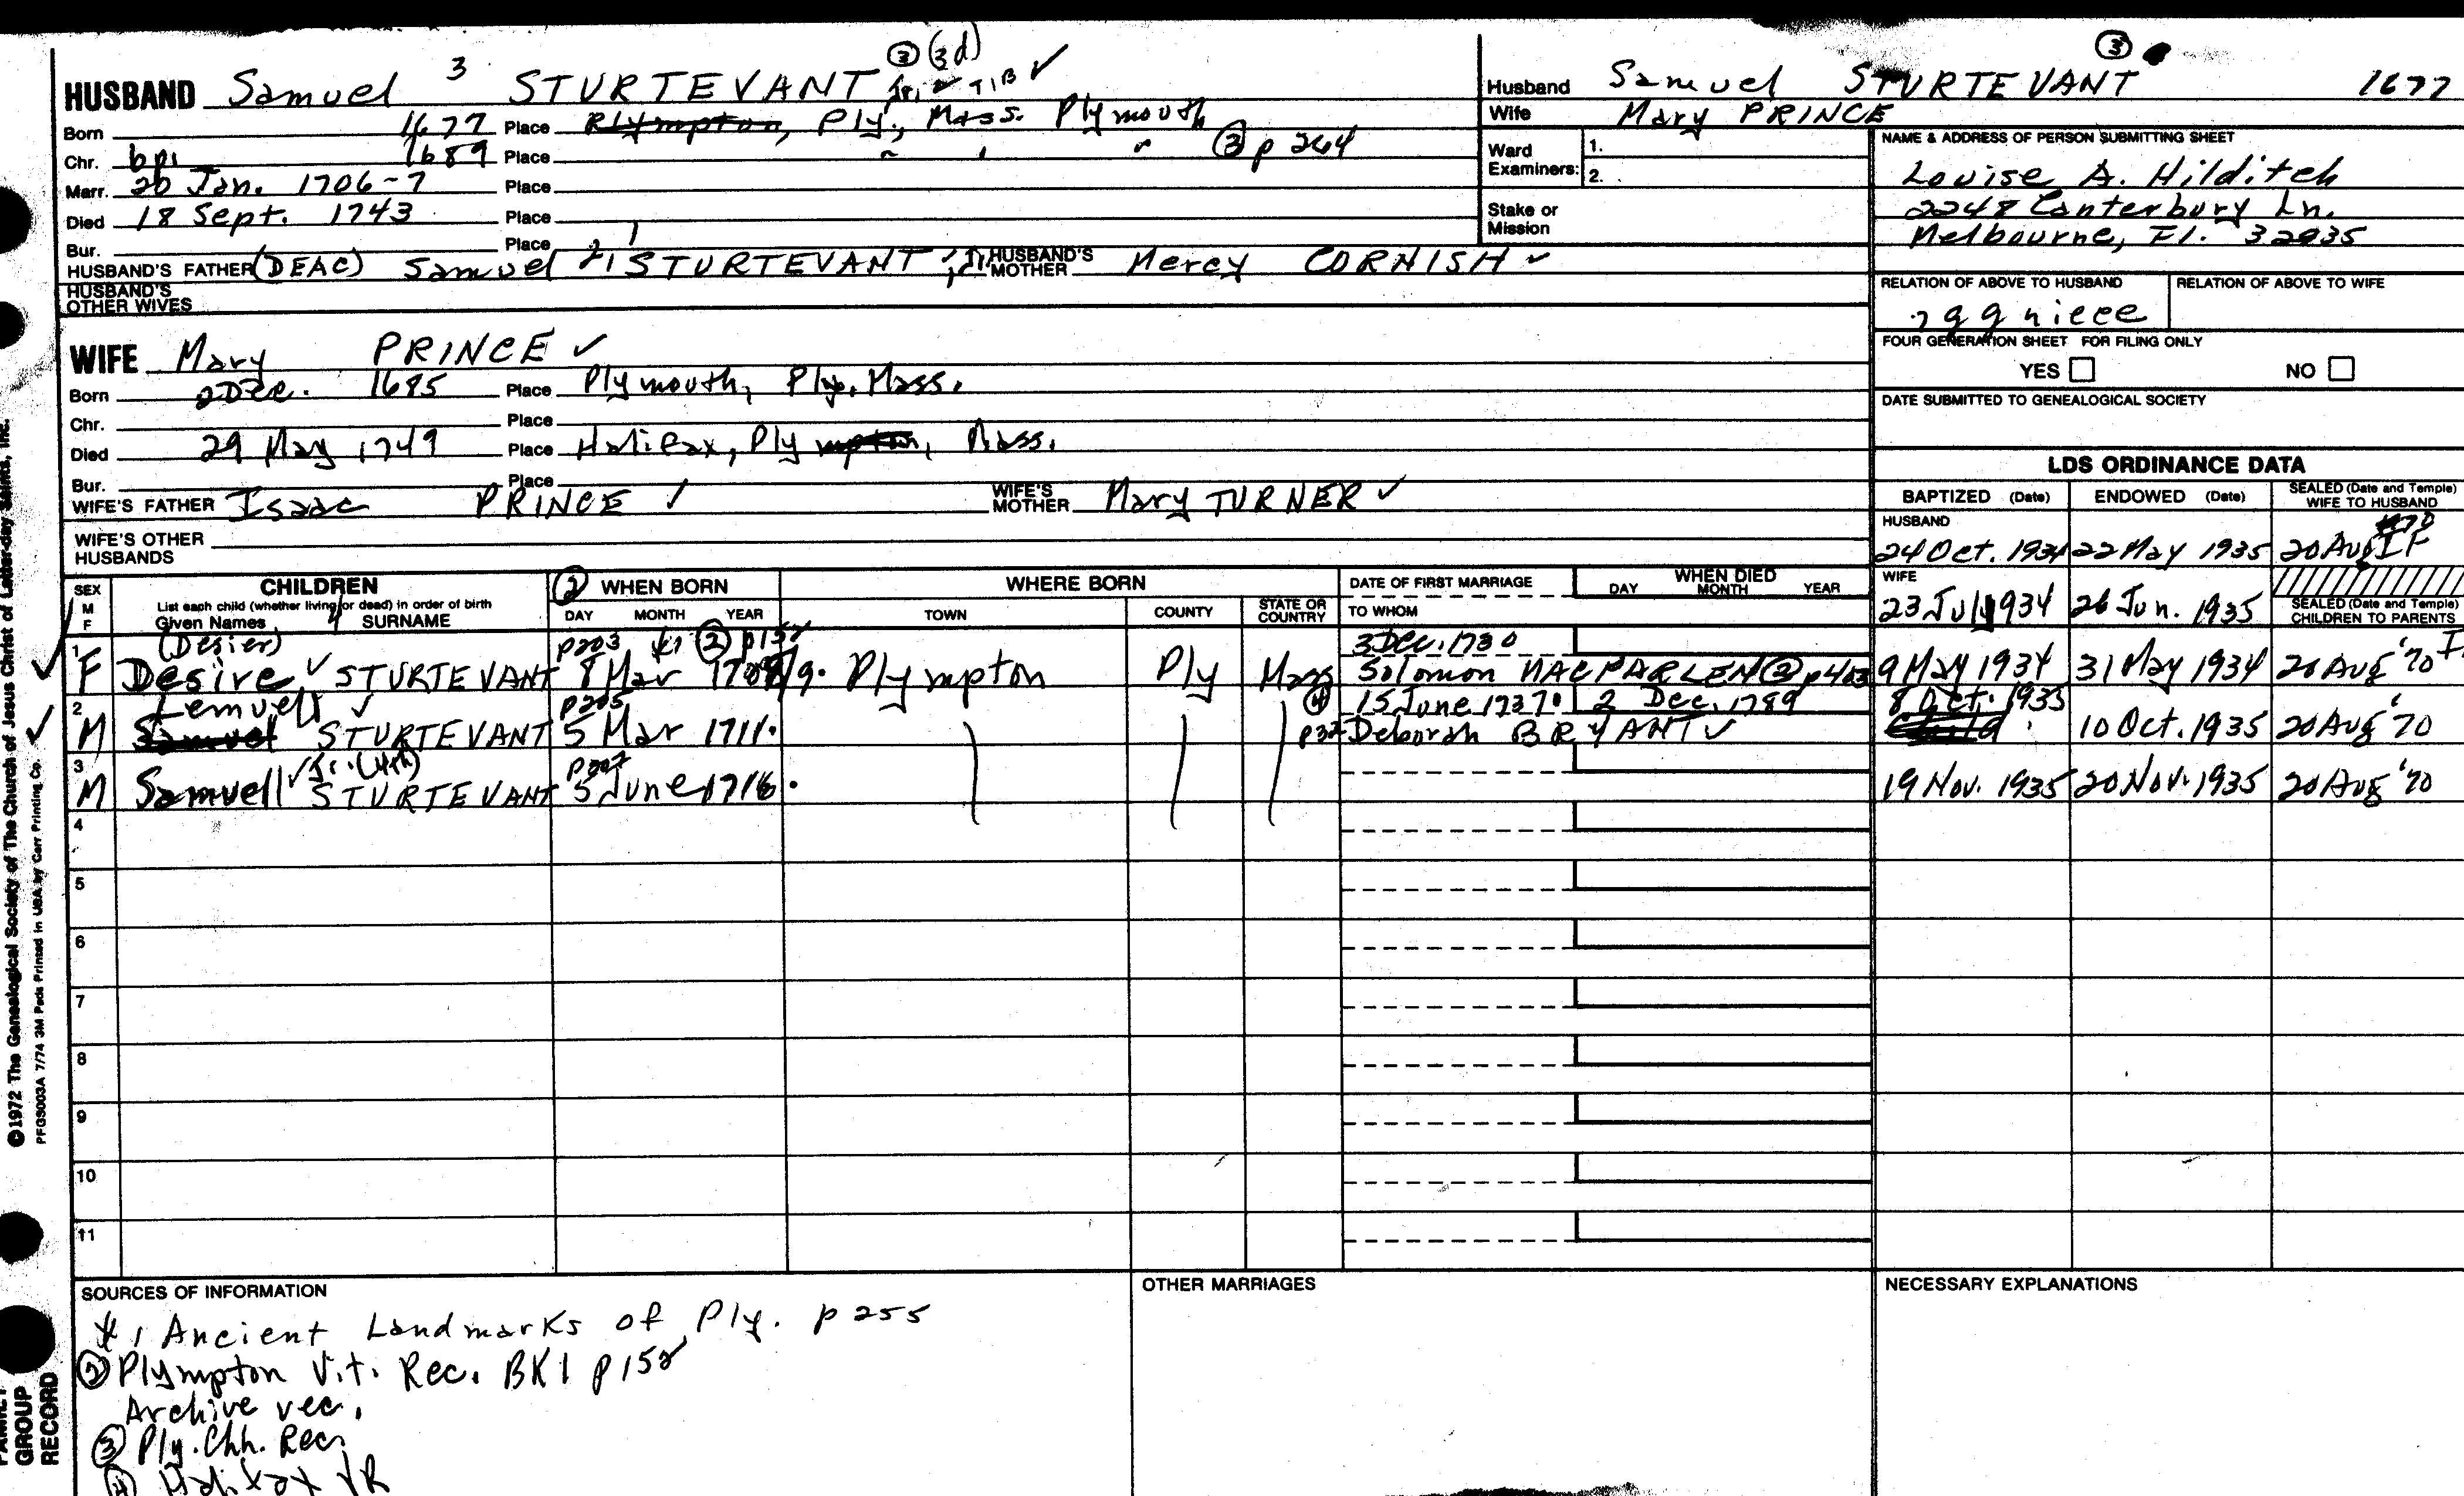 ③ (3d)
HUSBAND Samuel 3 STURTEVANT TIB ✓
Born 1677 Place Plympton, Ply., Mass. Plymouth
Chr. bpi 1689 Place " " " ③ p 264
Marr. 20 Jan. 1706-7 Place
Died 18 Sept. 1743 Place
Bur. Place
HUSBAND'S FATHER (DEAC) Samuel STURTEVANT HUSBAND'S MOTHER Mercy CORNISH ✓
HUSBAND'S OTHER WIVES
WIFE Mary PRINCE ✓
Born 2 Dec. 1685 Place Plymouth, Ply. Mass.
Chr. Place
Died 29 May 1749 Place Halifax, Plympton, Mass.
Bur. Place
WIFE'S FATHER Isaac PRINCE ✓ WIFE'S MOTHER Mary TURNER ✓
WIFE'S OTHER HUSBANDS
③
Husband Samuel STURTEVANT 1677
Wife Mary PRINCE
Ward Examiners: 1.
2.
Stake or Mission
NAME & ADDRESS OF PERSON SUBMITTING SHEET
Louise A. Hilditch
2248 Canterbury Ln.
Melbourne, Fl. 32935
RELATION OF ABOVE TO HUSBAND RELATION OF ABOVE TO WIFE
gg niece
FOUR GENERATION SHEET FOR FILING ONLY
YES NO
DATE SUBMITTED TO GENEALOGICAL SOCIETY
LDS ORDINANCE DATA
BAPTIZED (Date) ENDOWED (Date) SEALED (Date and Temple) WIFE TO HUSBAND
HUSBAND
24 Oct. 1934 22 May 1935 20 Aug 1970 IF
WIFE
23 July 1934 26 Jun. 1935
SEALED (Date and Temple) CHILDREN TO PARENTS
SEX M F CHILDREN ② WHEN BORN WHERE BORN DATE OF FIRST MARRIAGE WHEN DIED
List each child (whether living or dead) in order of birth
Given Names SURNAME DAY MONTH YEAR TOWN COUNTY STATE OR COUNTRY TO WHOM DAY MONTH YEAR
1 (Desier) p203 ② p152 3 Dec. 1730
F Desire ✓ STURTEVANT 8 Mar 1708/9. Plympton Ply Mass Solomon MACPARLEN ② p403 9 May 1934 31 May 1934 20 Aug '70
2 Lemuell ✓ p205 ④ 15 June 1737. 2 Dec. 1789 8 Oct. 1935
M Samuel STURTEVANT 5 Mar 1711. Deborah BRYANT ✓ Child 10 Oct. 1935 20 Aug '70
3 Jr. (4th) p207
M Samuell ✓ STURTEVANT 5 June 1716. 19 Nov. 1935 20 Nov. 1935 20 Aug '70
4
5
6
7
8
9
10
11
SOURCES OF INFORMATION OTHER MARRIAGES NECESSARY EXPLANATIONS
#1 Ancient Landmarks of Ply. p 255
② Plympton Vit. Rec. BK1 p 152
Archive rec.
③ Ply. Chh. Rec.
④ Halifax VR
©1972 The Genealogical Society of The Church of Jesus Christ of Latter-day Saints, Inc.
PFGS003A 7/74 3M Pads Printed in USA by Carr Printing Co.
FAMILY GROUP RECORD